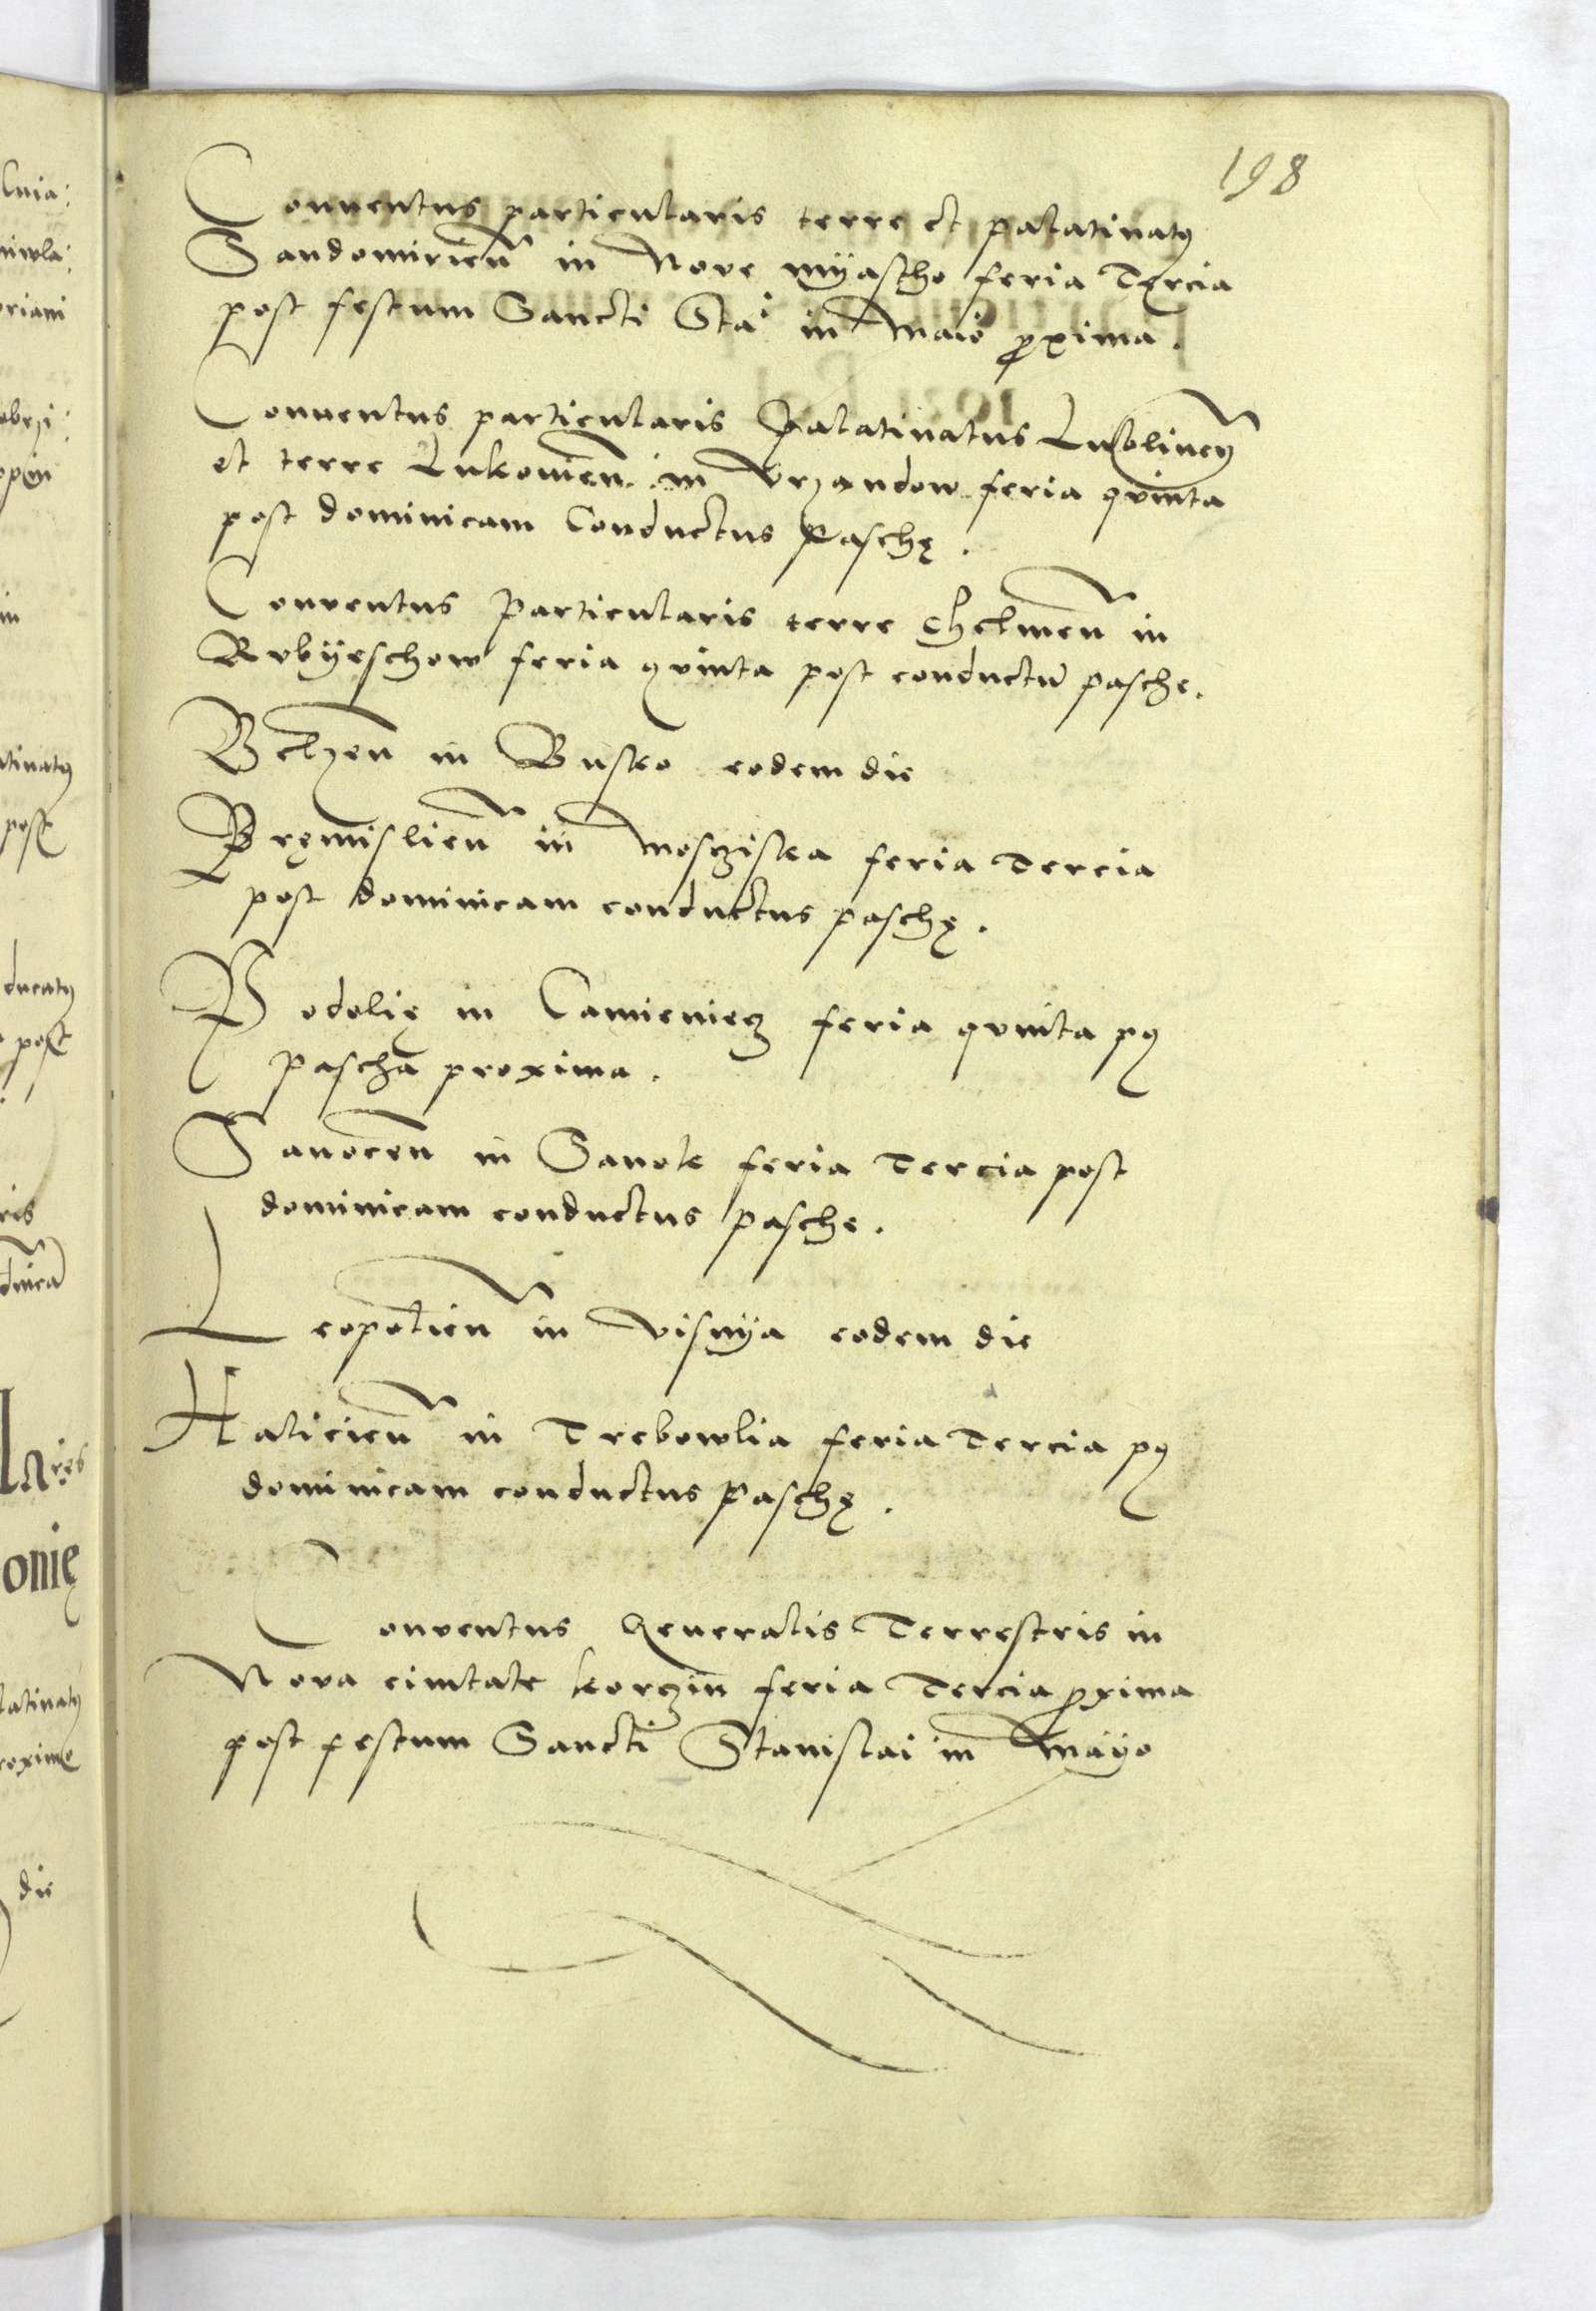 198
Conuentus particularis terre et palatinatus
Sandomirien in Nove myascho feria Tercia
post festum Sancti Sta: in Maio proxima.
Conuentus particularis Palatinatus Lublinen
et terre Lukowien. in Vrzandow feria quinta
post dominicam Conductus Paschę.
Conventus Particularis terre Chelmen in
Rvbyeschow feria quinta post conductu pasche.
Belzen in Busko eodem die
Pręmislien in Mosziska feria Tercia
post dominicam conductus paschę.
Podolię in Camieniecz feria quinta post
Pascha proxima.
Sanocen in Sanok feria Tercia post
dominicam conductus Pasche.
Leopolien in Visnya eodem die
Halicien in Trebowlia feria Tercia post
dominicam conductus Paschę.
Conventus Generalis Terrestris in
Nova civitate korczin feria Tercia proxima
post festum Sancti Stanislai in Mayo